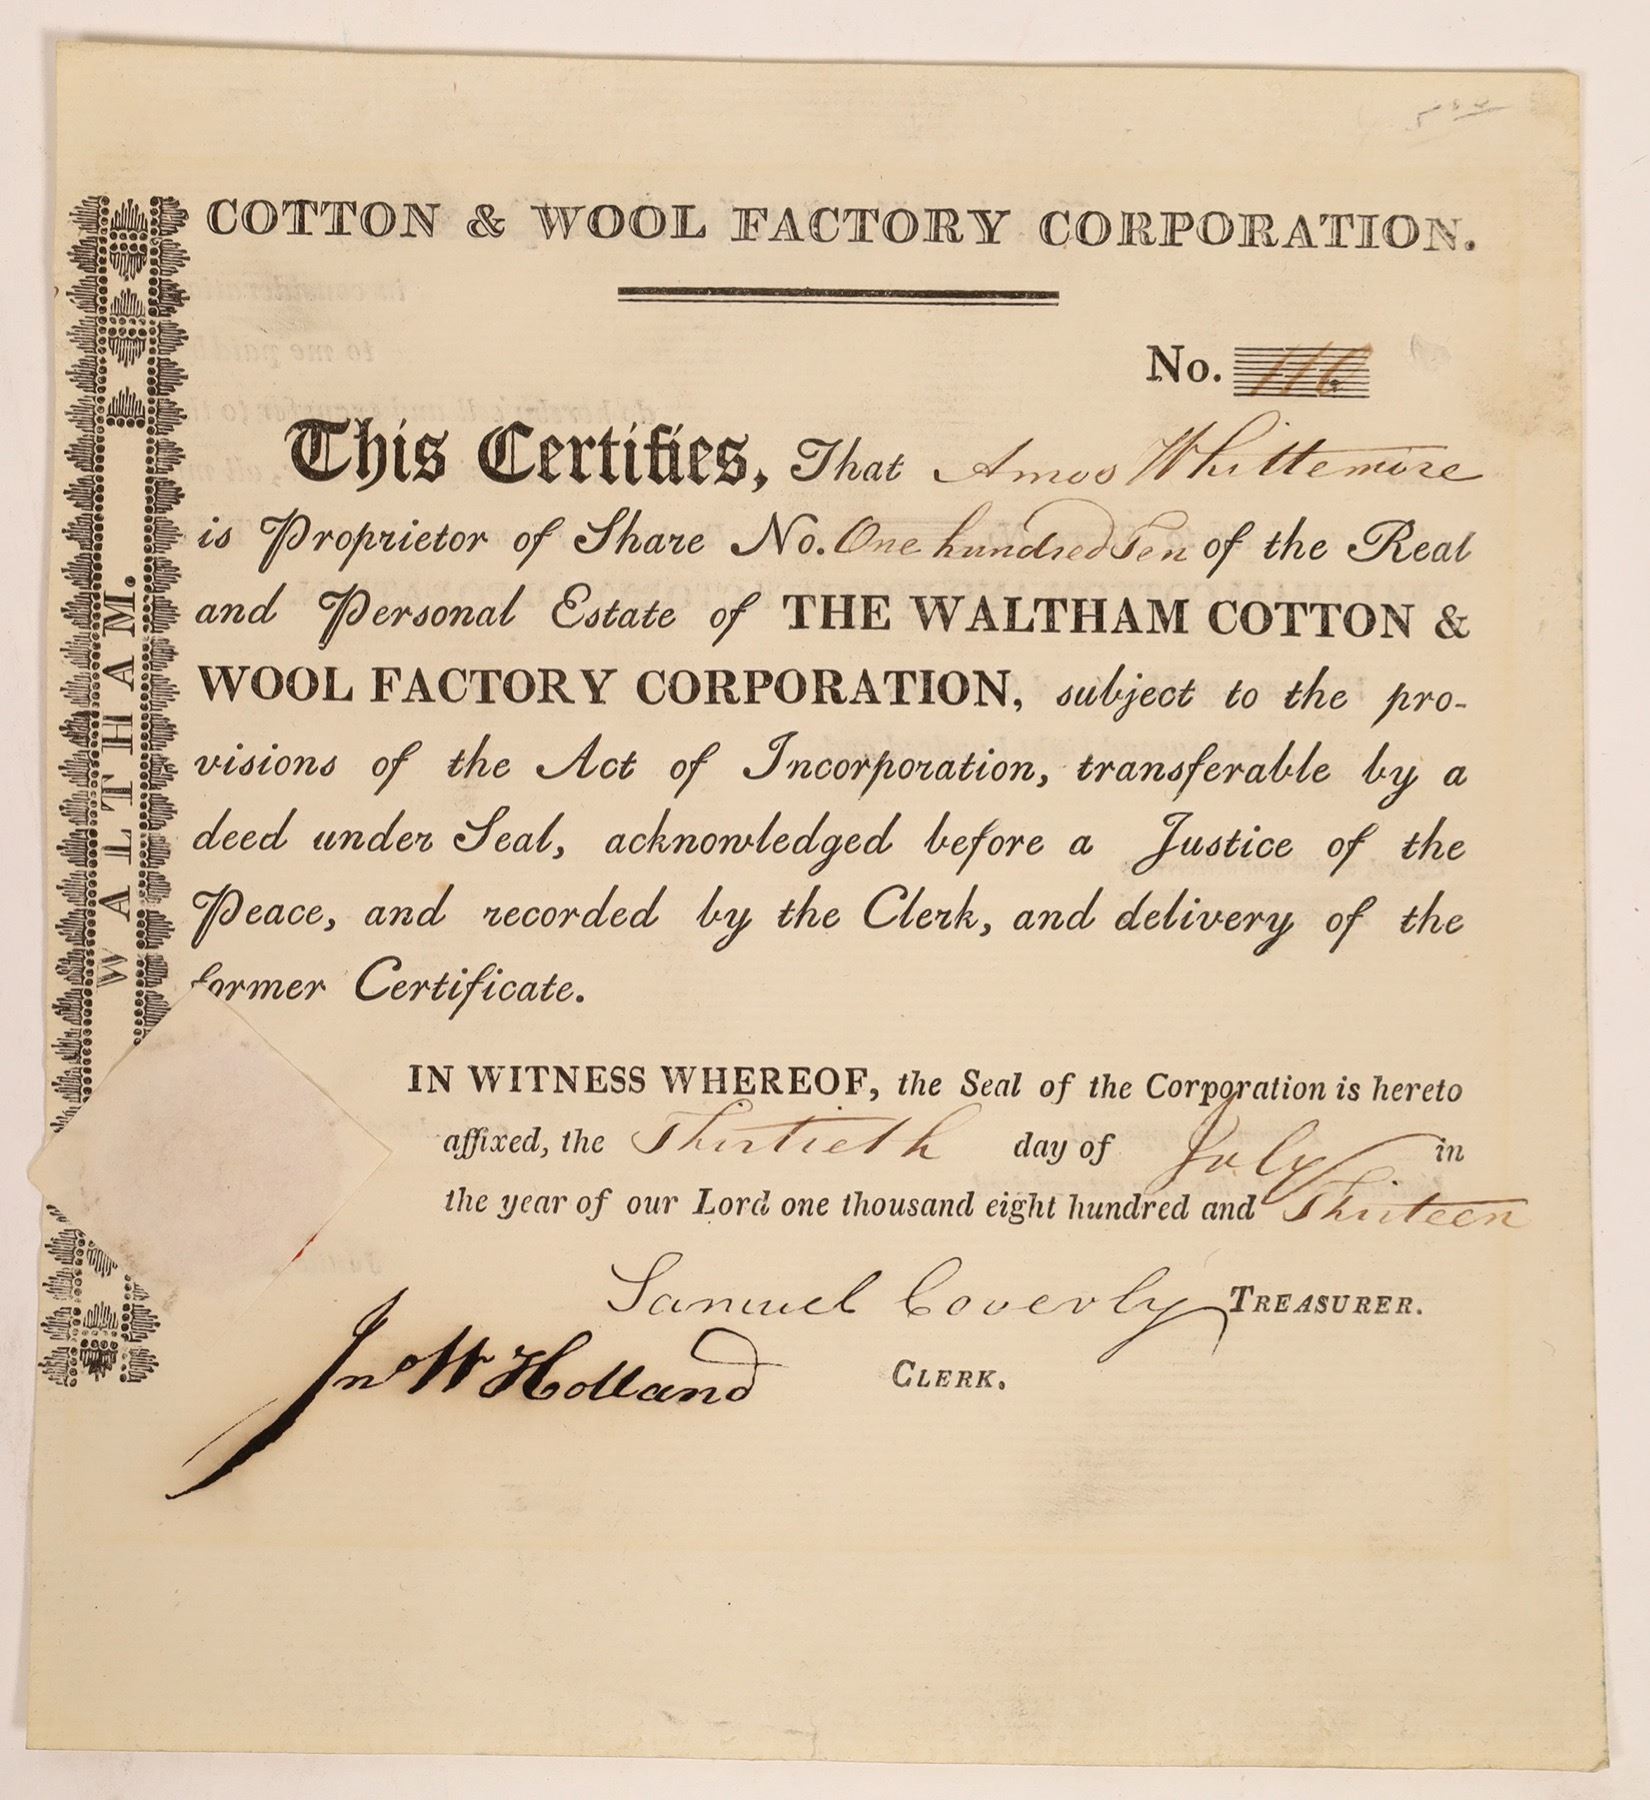 COTTON & WOOL FACTORY CORPORATION.
No. 110
This Certifies, That Amos Whittemore
is Proprietor of Share No. One hundred Ten of the Real
and Personal Estate of THE WALTHAM COTTON &
WOOL FACTORY CORPORATION, subject to the pro-
visions of the Act of Incorporation, transferable by a
deed under Seal, acknowledged before a Justice of the
Peace, and recorded by the Clerk, and delivery of the
former Certificate.
IN WITNESS WHEREOF, the Seal of the Corporation is hereto
affixed, the Thirtieth day of July in
the year of our Lord one thousand eight hundred and Thirteen
Samuel Coverly TREASURER.
Jno W Holland CLERK.
WALTHAM.